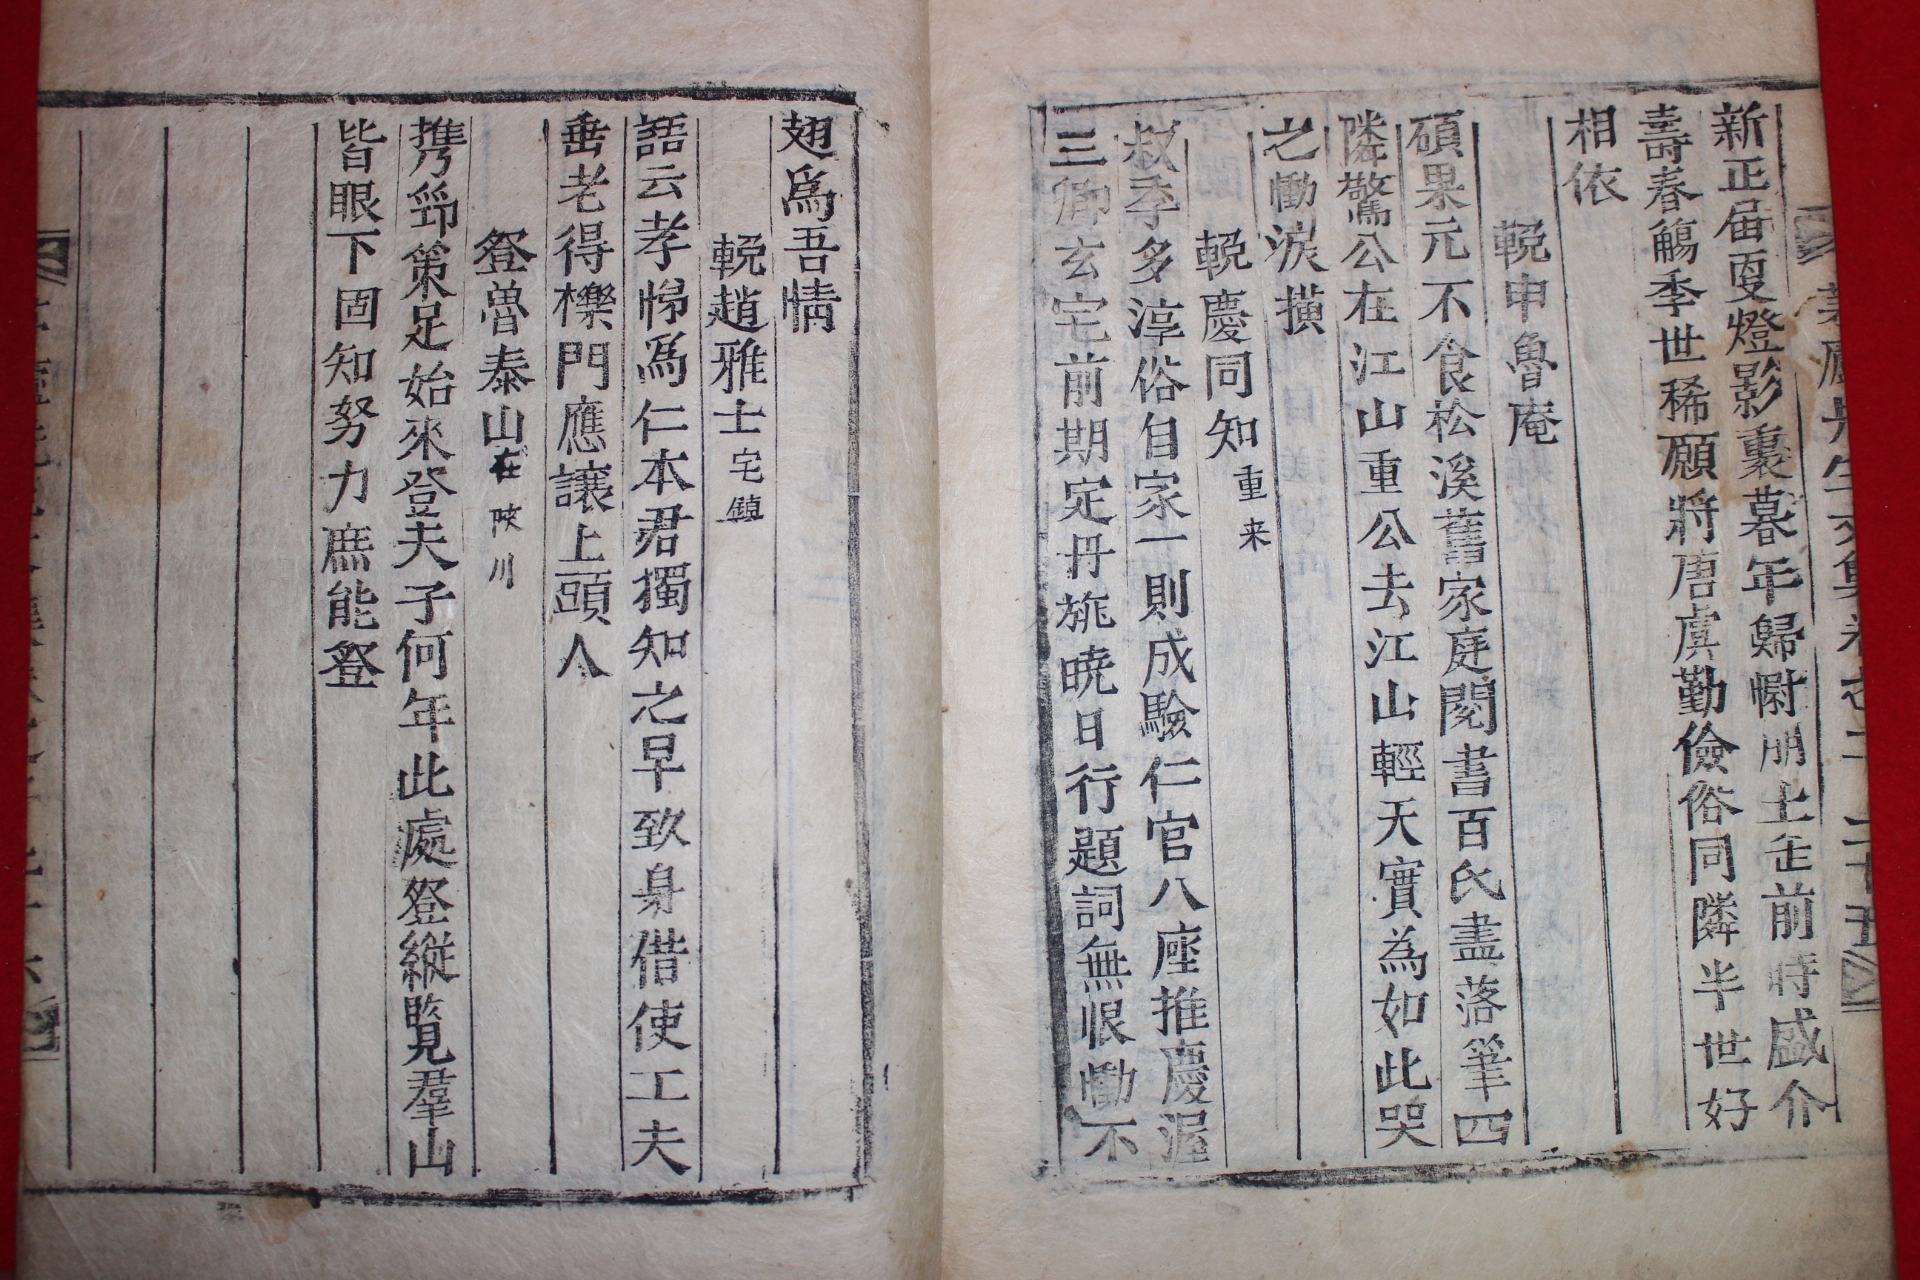 新正届戛燈影裏暮年歸㥜朋士歪前時盛介
壽春觴季世稀願將唐虞勤儉俗同隣半世好
相依
輓申魯庵
碩果元不食松溪舊家庭閱書百氏盡落筆四
隣驚公在江山重公去江山輕天實為如此哭
之慟淚橫
輓慶同知重来
叔季多淳俗自家一則成驗仁官八座推慶渥
三卿玄宅前期定丹旐曉日行題詞無恨慟不
翅爲吾情
輓趙雅士宅鎮
語云孝悌爲仁本君獨知之早致身借使工夫
垂老得櫟門應讓上頭人
登魯泰山在陜川
携笻策足始來登夫子何年此處登縱覧羣山
皆眼下固知努力庶能登